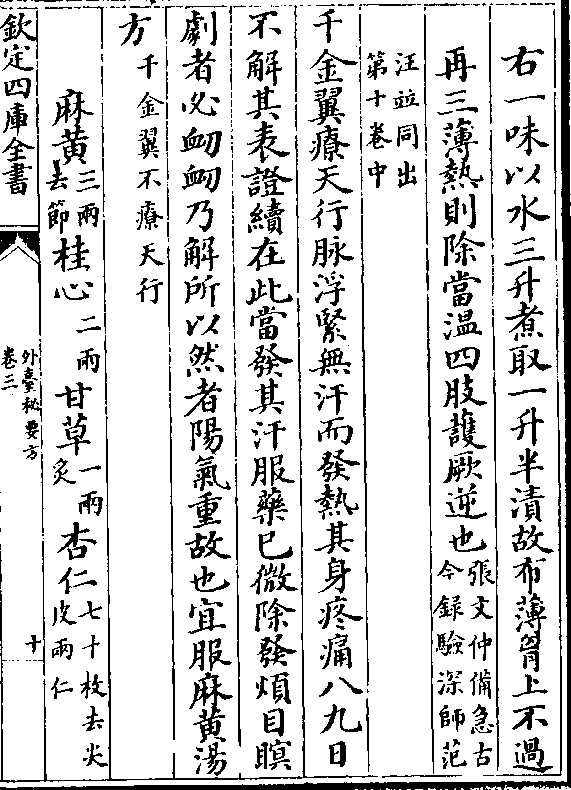 右一味以水三升煮取一升半漬故布薄胷上不過
再三薄熱則除當温四肢䕶厥逆也張文仲備急古
今録驗深師范
汪竝同出
第十卷中
千金翼療天行脉浮緊無汗而發熱其身疼痛八九日
不解其表證續在此當發其汗服藥已微除發煩目瞑
劇者必衂衂乃解所以然者陽氣重故也宜服麻黄湯
方千金翼不療天行
麻黄三兩去節 桂心二兩 甘草一兩炙 杏仁七十枚去尖皮兩仁
欽定四庫全書
外臺秘要方
卷三
十